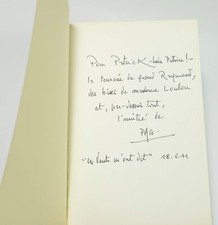 Pour Patrick - bien entendu ! -
la tournée du grand Raymond,
des bises de madame Loulou
et, par-dessus tout,
l'amitié de
PAG.
"Les Vents m'ont dit" 18.V.11